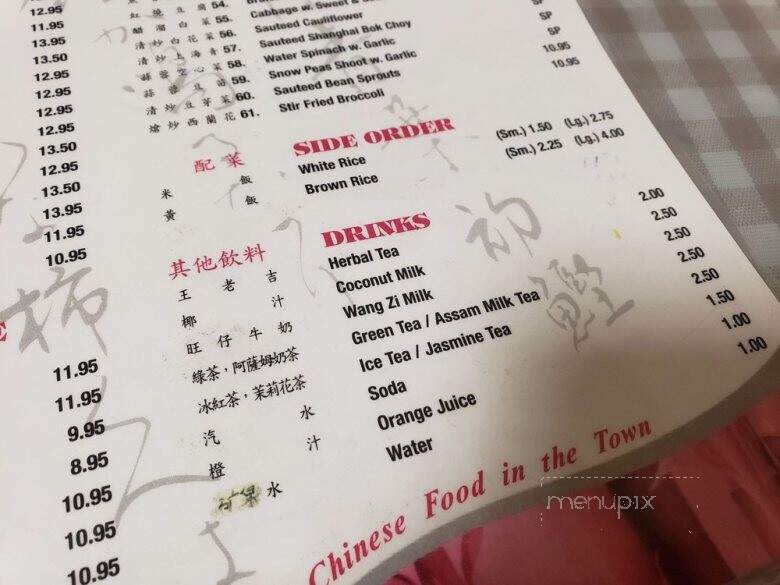 12.95
11.95
13.95
13.50
12.95
12.95
12.95
13.50
12.95
13.50
13.95
11.95
10.95
54.
醋溜白菜 55. Cabbage w. Sweet &
清炒白花菜 56. Sauteed Cauliflower
清炒上海青 57. Sauteed Shanghai Bok Choy SP
蒜蓉空心菜 58. Water Spinach w. Garlic SP
蒜蓉豆苗 59. Snow Peas Shoot w. Garlic SP
清炒豆芽菜 60. Sauteed Bean Sprouts 10.95
熗炒西蘭花 61. Stir Fried Broccoli 10.95
配菜 SIDE ORDER
米飯 White Rice (Sm.) 1.50 (Lg.) 2.75
黃飯 Brown Rice (Sm.) 2.25 (Lg.) 4.00
其他飲料 DRINKS
王老吉 Herbal Tea 2.00
椰汁 Coconut Milk 2.50
旺仔牛奶 Wang Zi Milk 2.50
綠茶，阿薩姆奶茶 Green Tea / Assam Milk Tea 2.50
冰紅茶，茉莉花茶 Ice Tea / Jasmine Tea 2.50
汽水 Soda 1.50
橙汁 Orange Juice 1.00
矿泉水 Water 1.00
11.95
11.95
9.95
8.95
10.95
10.95
10.95
Chinese Food in the Town
menupix